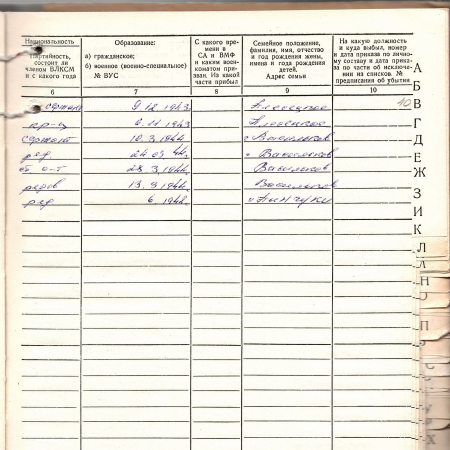 Национальность
Партийность, состоит ли членом ВЛКСМ и с какого года
Образование:
а) гражданское;
б) военное (военно-специальное)
№ ВУС
С какого времени в СА и ВМФ и каким военкоматом призван. Из какой части прибыл
Семейное положение, фамилия, имя, отчество и год рождения жены, имена и года рождения детей.
Адрес семьи
На какую должность и куда выбыл, номер и дата приказа по личному составу и дата приказа по части об исключении из списков. № предписания об убытии
6 7 8 9 10
сержант 9.12.1943
кр-ц 6.11.1943
сержант 10.3.1944 с Васильков
ряд 24.03.44г. с Васильков
23.3.1944 Васильков
рядов 13.3.1944 Васильков
ряд 6.1944
А
Б
В
Г
Д
Е
Ж
З
И
К
Л
Н
О
П